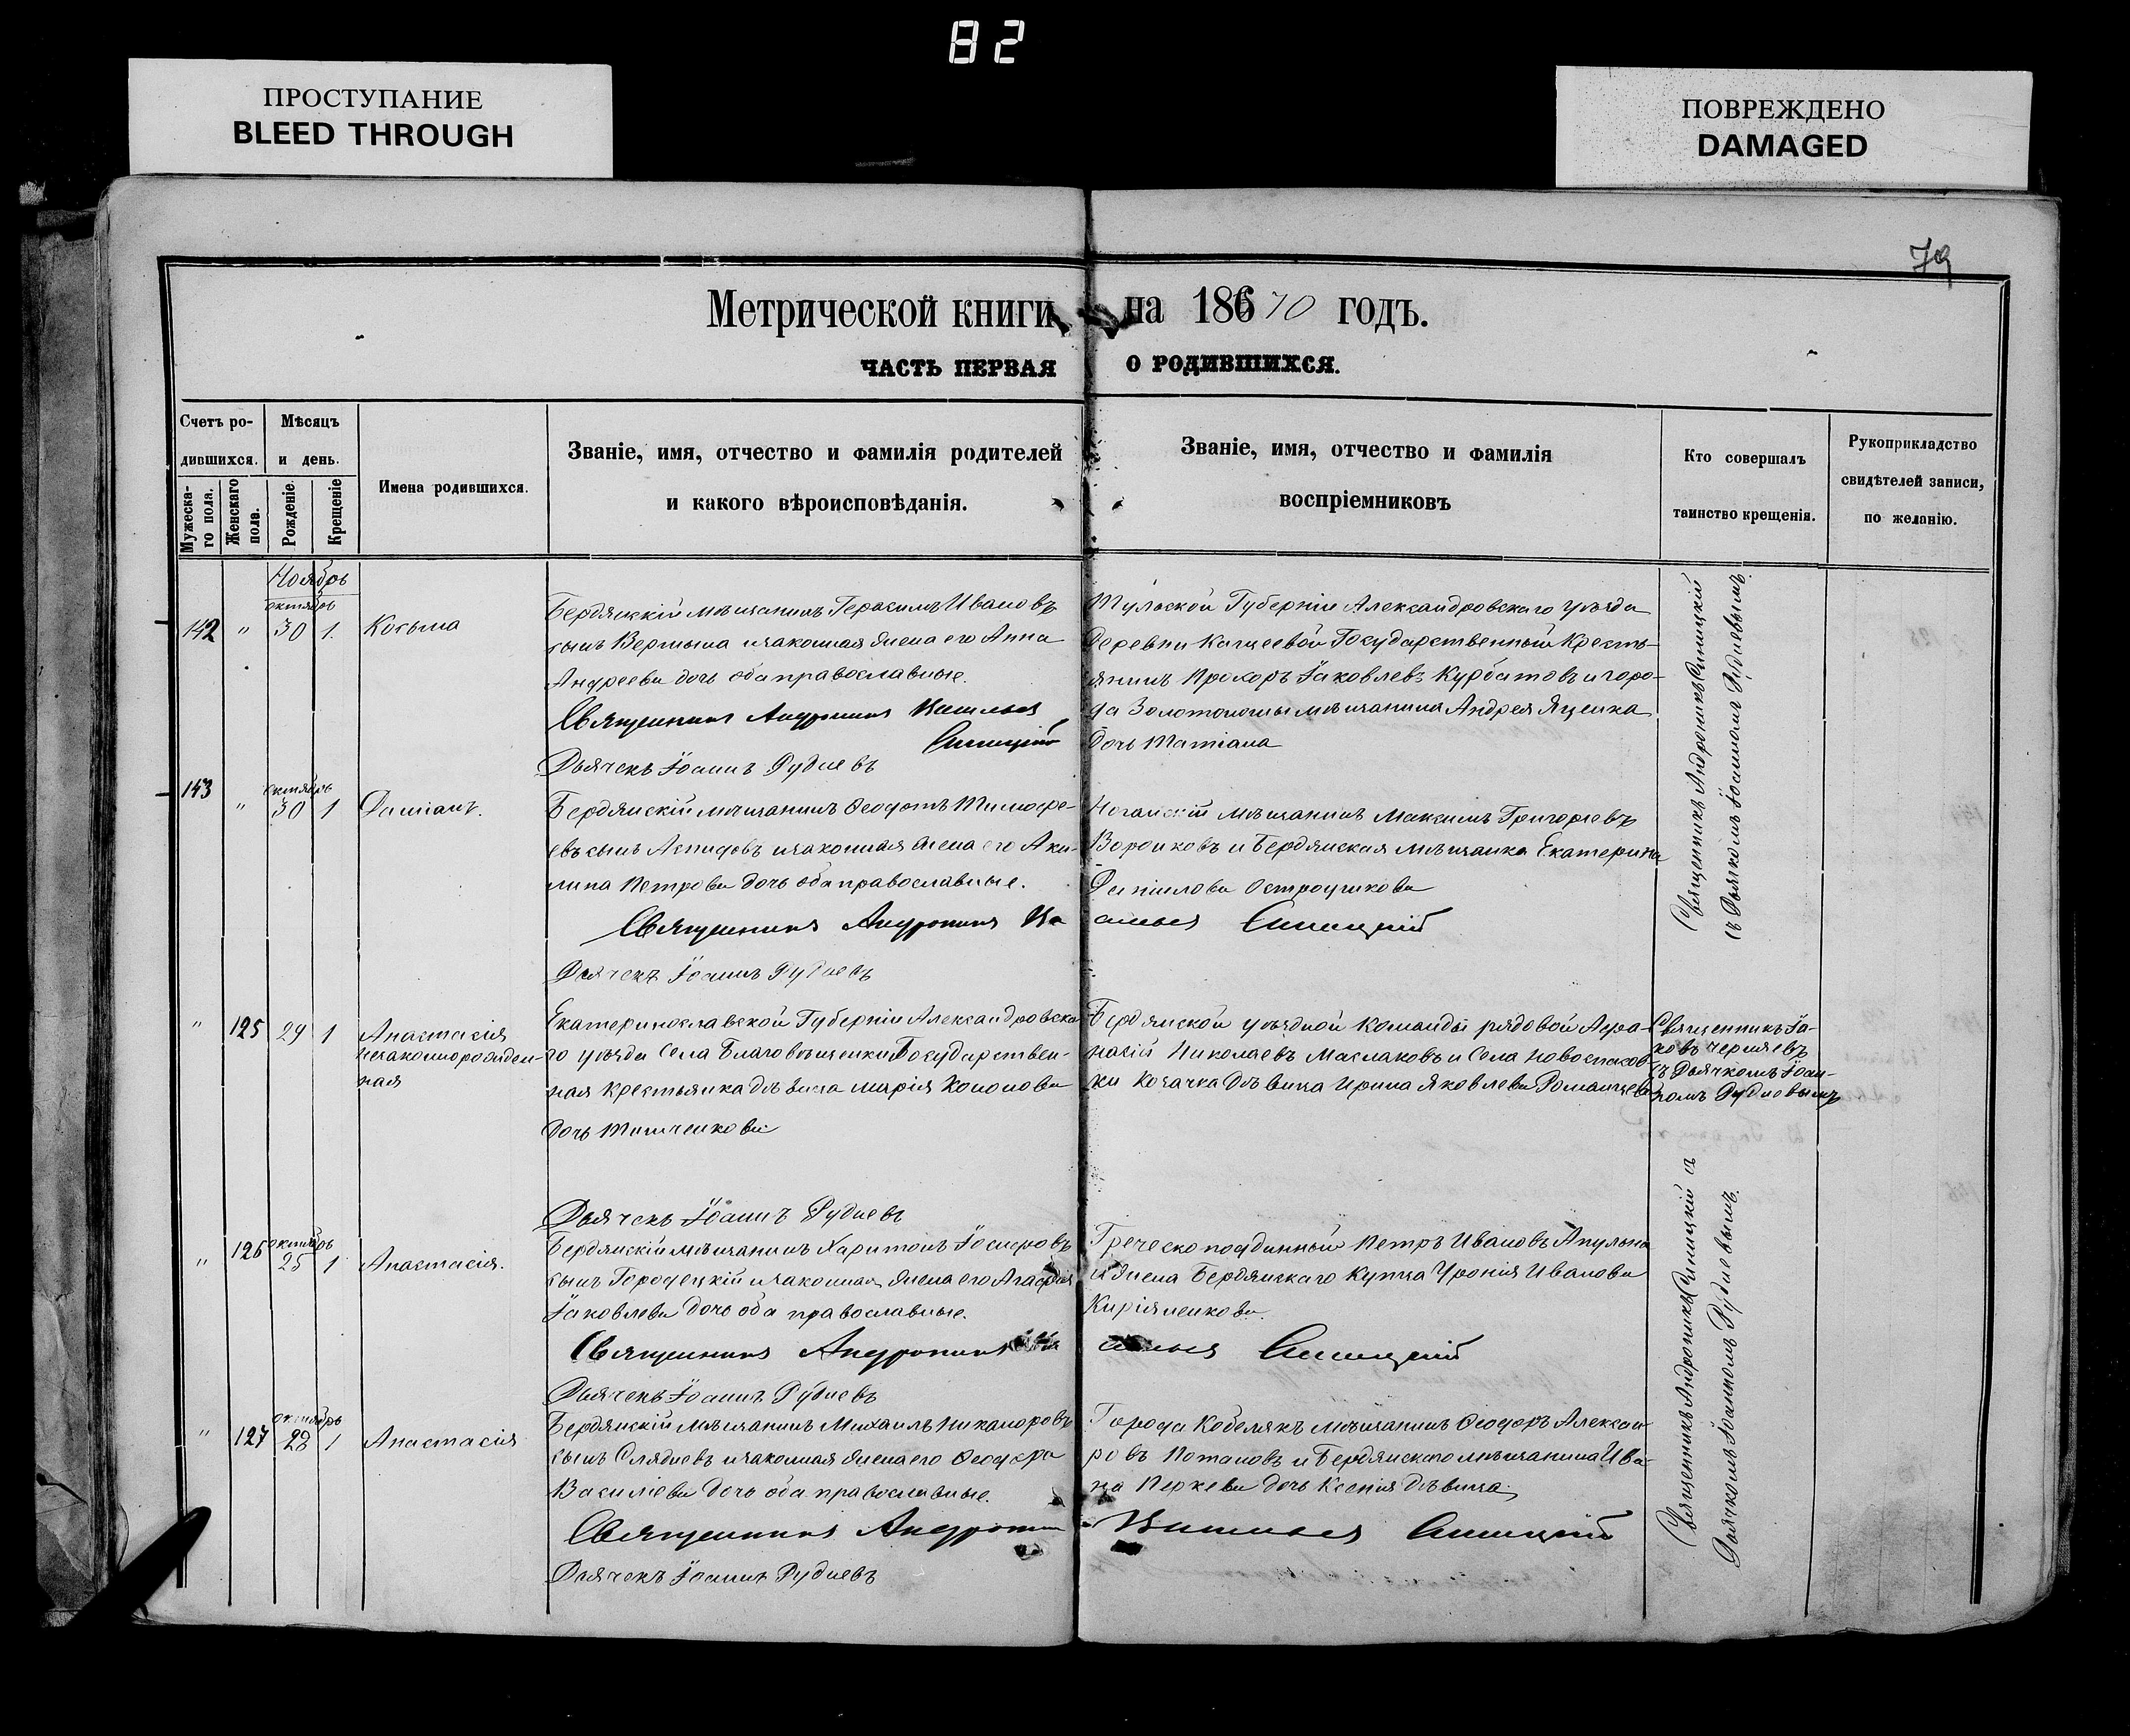 82
ПРОСТУПАНИЕ
BLEED THROUGH
ПОВРЕЖДЕНО
DAMAGED
79
Метрической книги на 18670 годъ.
ЧАСТЬ ПЕРВАЯ О РОДИВШИХСЯ.
Счетъ ро-
дившихся.
Мужеска-
го пола.
Женскаго
пола.
Мѣсяцъ
и день.
Рожденіе.
Крещеніе
Имена родившихся.
Званіе, имя, отчество и фамилія родителей
и какого вѣроисповѣданія.
Званіе, имя, отчество и фамилія
воспріемниковъ
Кто совершалъ
таинство крещенія.
Рукоприкладство
свидѣтелей записи,
по желанію.
Ноябрь
октябрь
142 " 30 1. Косьма
Бердянскій мѣщанинъ Герасимъ Ивановъ
сынъ законная жена его Анна
Андреева дочь оба православные.
Священникъ Андроникъ Васильевъ
Синицкій
Дьячекъ Іоаннъ Рудневъ
Тульской Губерніи Александровскаго уѣзда
деревни Кащеевой Государственный Кресть-
янинъ Прохоръ Іаковлевъ Курбатовъ и горо-
да Золотоноши мѣщанина Андрея Яценка
дочь Татіана
Священникъ Андроникъ Синицкій
съ Дьячкомъ Іоанномъ Рудневымъ.
143 " октябрь 30 1 Даміанъ.
Бердянскій мѣщанинъ Ѳеодотъ Тимофе-
евъ сынъ Аспидовъ и законная жена его Аки-
лина Петрова дочь оба православные.
Священникъ Андроникъ Ва
сильевъ Синицкій
Дьячекъ Іоаннъ Рудневъ
Ногайскій мѣщанинъ Максимъ Григорьевъ
Воронковъ и Бердянская мѣщанка Екатерина
Даніилова
" 125 29 1 Анастасія
незаконнорожден-
ная
Екатеринославской Губерніи Александровска-
го уѣзда Села Благовѣщенки Государствен-
ная крестьянка дѣвица Марія Кононова
дочь Тимченкова
Дьячекъ Іоаннъ Рудневъ
Бердянской уѣздной команды рядовой Аѳа-
насій Николаевъ Маслаковъ и Села Новоспасов-
ки козачка дѣвица Ирина Яковлева
Священникъ Іа-
ковъ Черняевъ
съ Дьячкомъ Іоан-
номъ Рудневымъ
" 126 октябрь 25 1 Анастасія.
Бердянскій мѣщанинъ Харитонъ Іосифовъ
сынъ Городецкій и законная жена его Агафія
Іаковлева дочь оба православные.
Священникъ Андроникъ Ва
сильевъ Синицкій
Дьячекъ Іоаннъ Рудневъ
Греческоподданный Петръ Ивановъ
и жена Бердянскаго Купца Иванова
Киріяненкова.
Священникъ Андроникъ Синицкій съ
Дьячкомъ Іоанномъ Рудневымъ.
" 127 октябрь 28 1 Анастасія
Бердянскій мѣщанинъ Михаилъ Никаноровъ
сынъ Слядневъ и законная жена его Ѳеодора
Василіева дочь оба православные.
Священникъ Андроникъ
Васильевъ Синицкій
Дьячекъ Іоаннъ Рудневъ
Города Кобелякъ мѣщанинъ Ѳеодоръ Алексан-
ровъ Потаповъ и Бердянскаго мѣщанина Ива-
на дочь Ксенія дѣвица